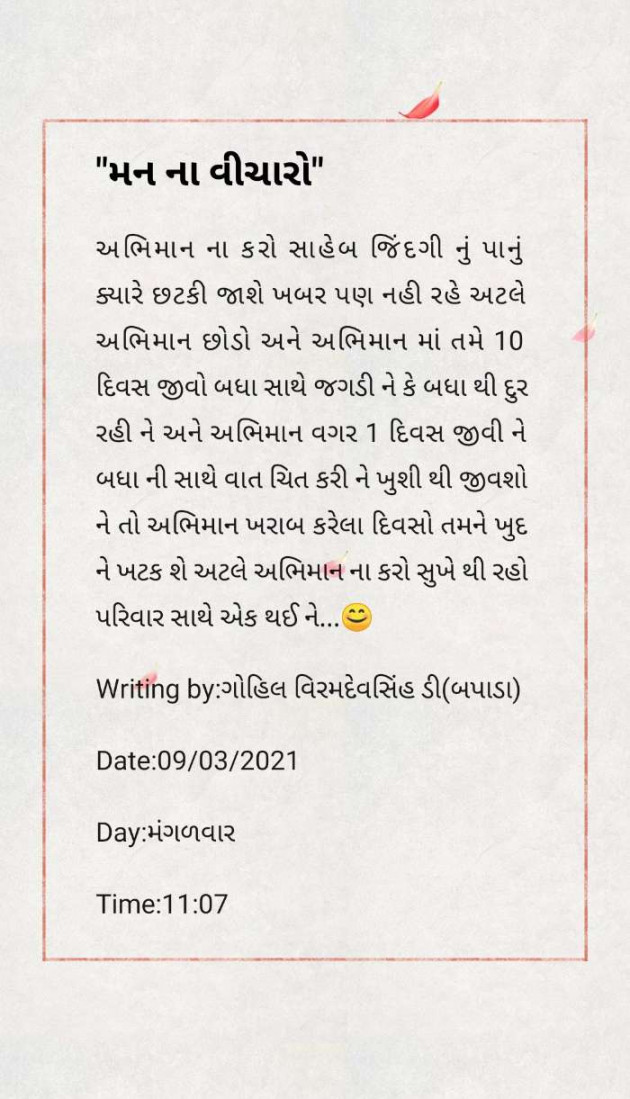 "મન ના વીચારો"
અભિમાન ના કરો સાહેબ જિંદગી નું પાનું
ક્યારે છટકી જાશે ખબર પણ નહી રહે અટલે
અભિમાન છોડો અને અભિમાન માં તમે 10
દિવસ જીવો બધા સાથે જગડી ને કે બધા થી દુર
રહી ને અને અભિમાન વગર 1 દિવસ જીવી ને
બધા ની સાથે વાત ચિત કરી ને ખુશી થી જીવશો
ને તો અભિમાન ખરાબ કરેલા દિવસો તમને ખુદ
ને ખટક શે અટલે અભિમાન ના કરો સુખે થી રહો
પરિવાર સાથે એક થઈ ને...😊
Writing by:ગોહિલ વિરમદેવસિંહ ડી(બપાડા)
Date:09/03/2021
Day:મંગળવાર
Time:11:07